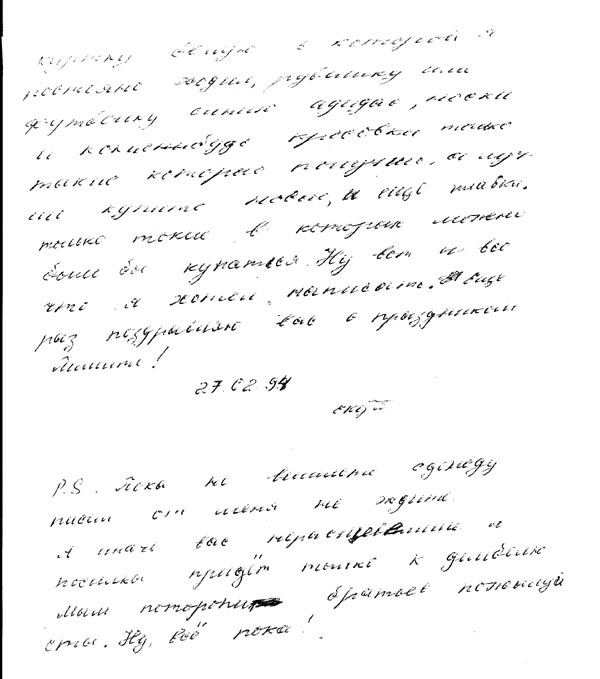 куртку белую в которой я
постояно ходил, рубашку или
футболку синию адидас, носки
и какиенибудь кросовки только
такие которые получше, а луч-
ше купите новые, и ещё плавки.
только такие в которых можно
было бы купаться. Ну вот и всё
что я хотел написать. И ещё
раз поздравляю вас с праздником
Пишите!
27.02.94
P.S. Пока не вышлите одежду
писем от меня не ждите.
А иначе вас
посылка придёт только к дембелю
Мыли поторопи братьев пожалуй
ста. Ну, всё пока!